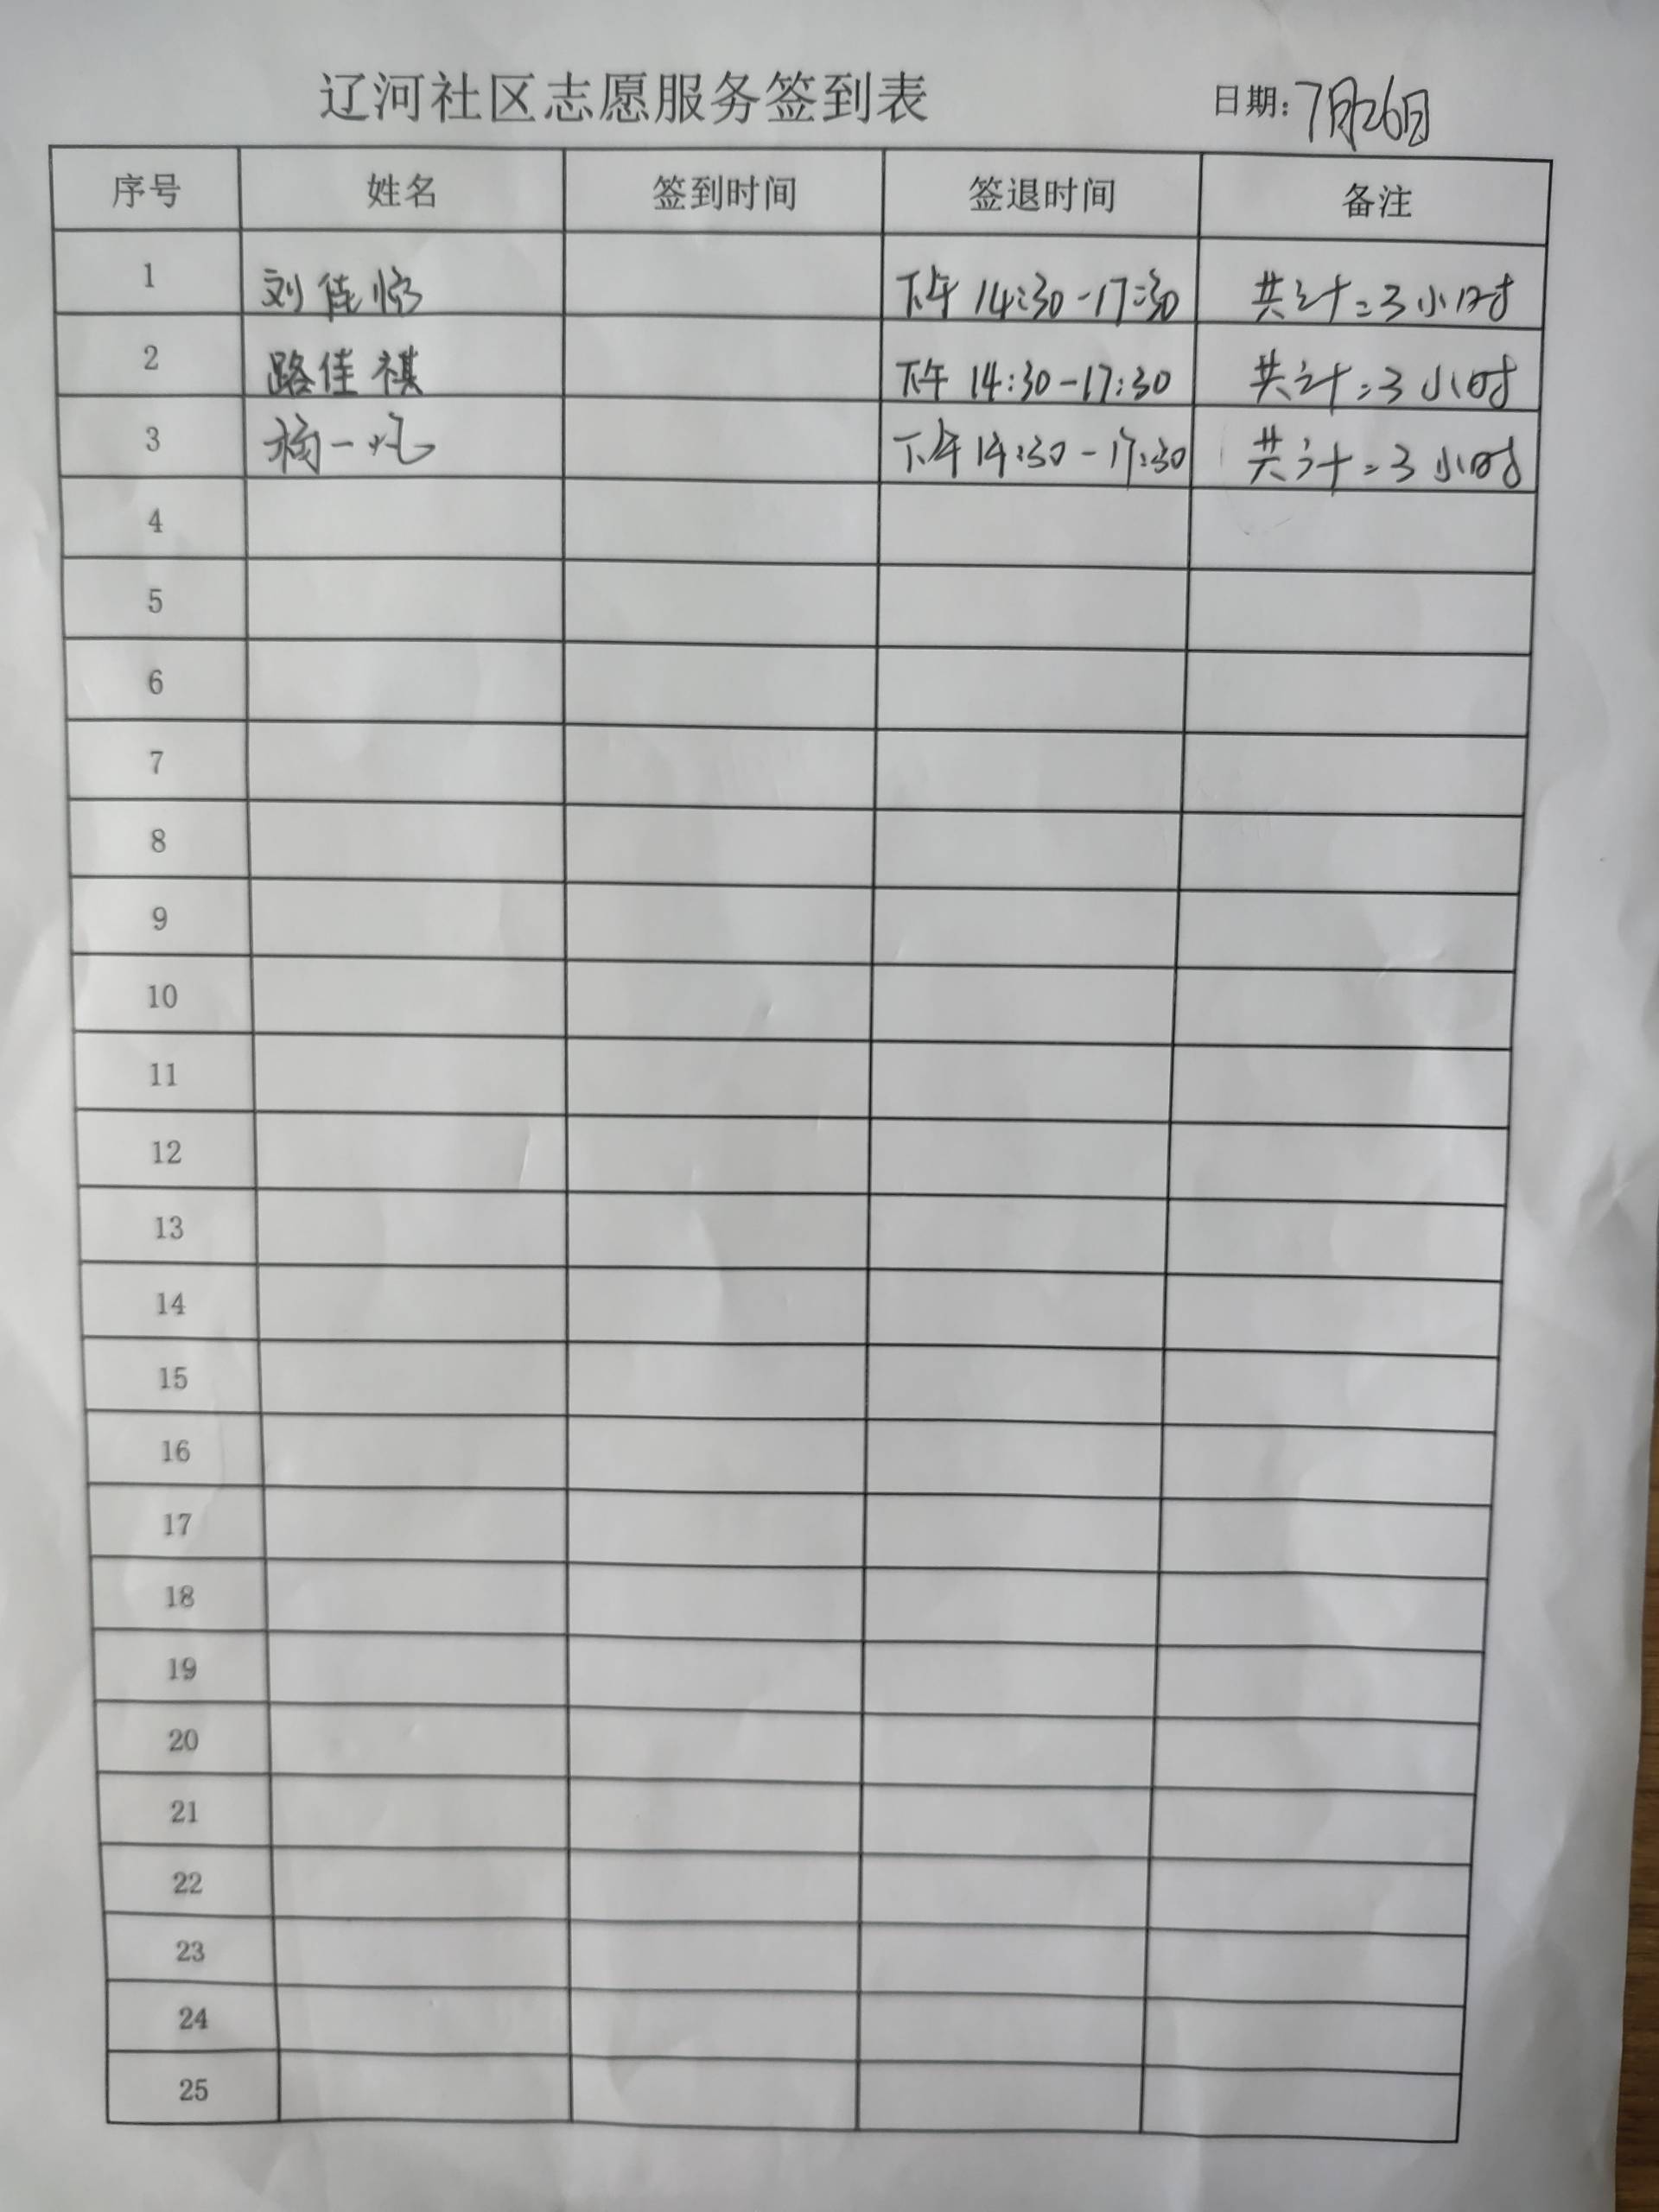 辽河社区志愿服务签到表 日期:7月26日
序号 姓名 签到时间 签退时间 备注
1 刘佳 下午 14:30-17:30 共计=3小时
2 路佳祺 下午 14:30-17:30 共计=3小时
3 杨一 下午 14:30-17:30 共计=3小时
4
5
6
7
8
9
10
11
12
13
14
15
16
17
18
19
20
21
22
23
24
25